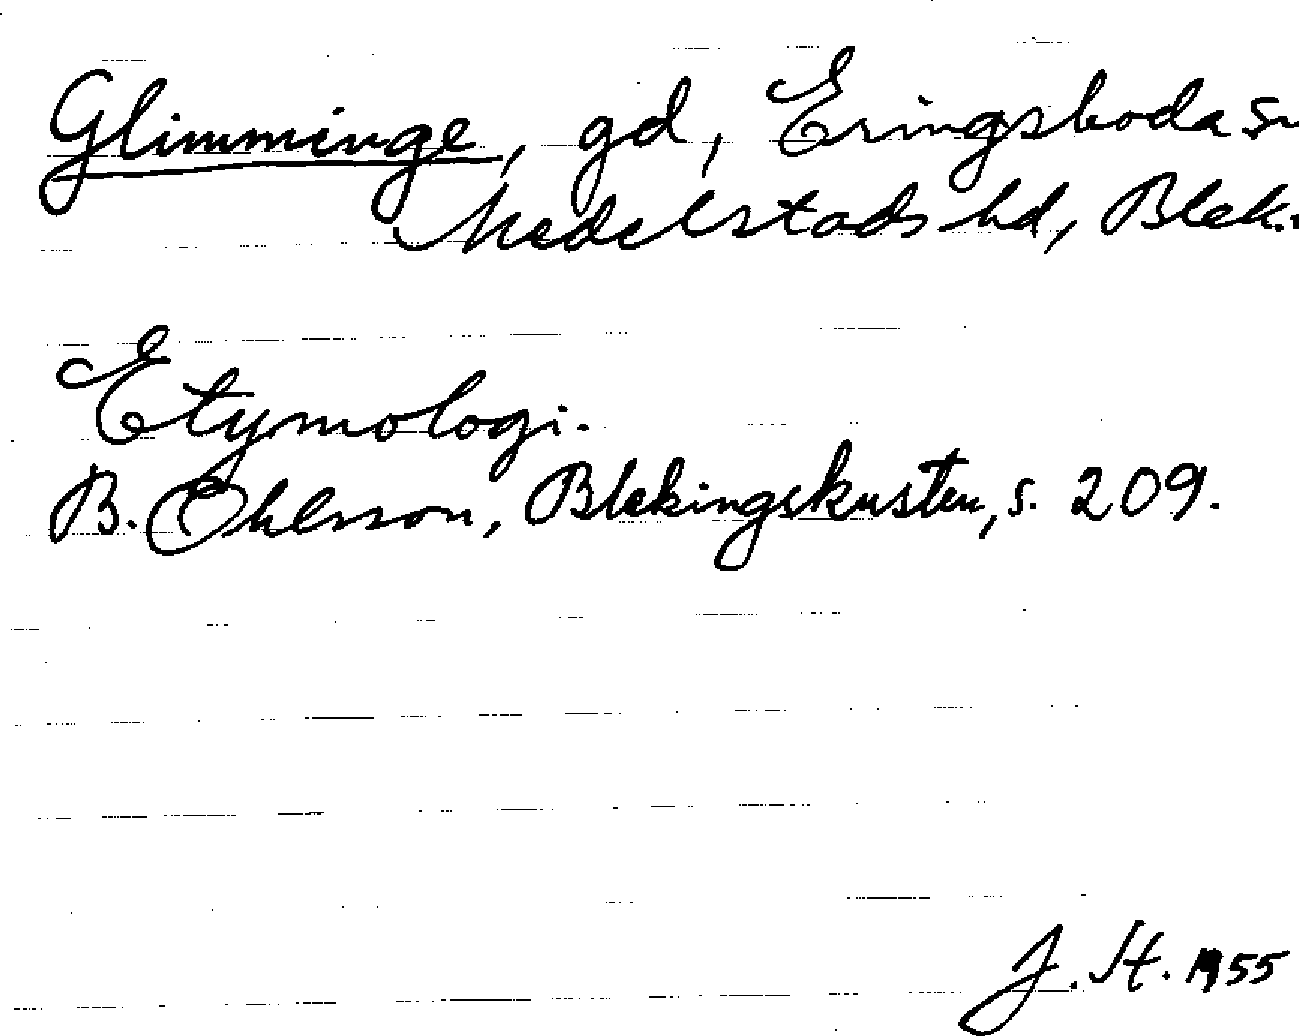 Glimminge, gd, Eringsboda sn
Medelstads hd, Blek.
Etymologi.
B. Ohlsson, Blekingskusten, s. 209.
J. H. 1955